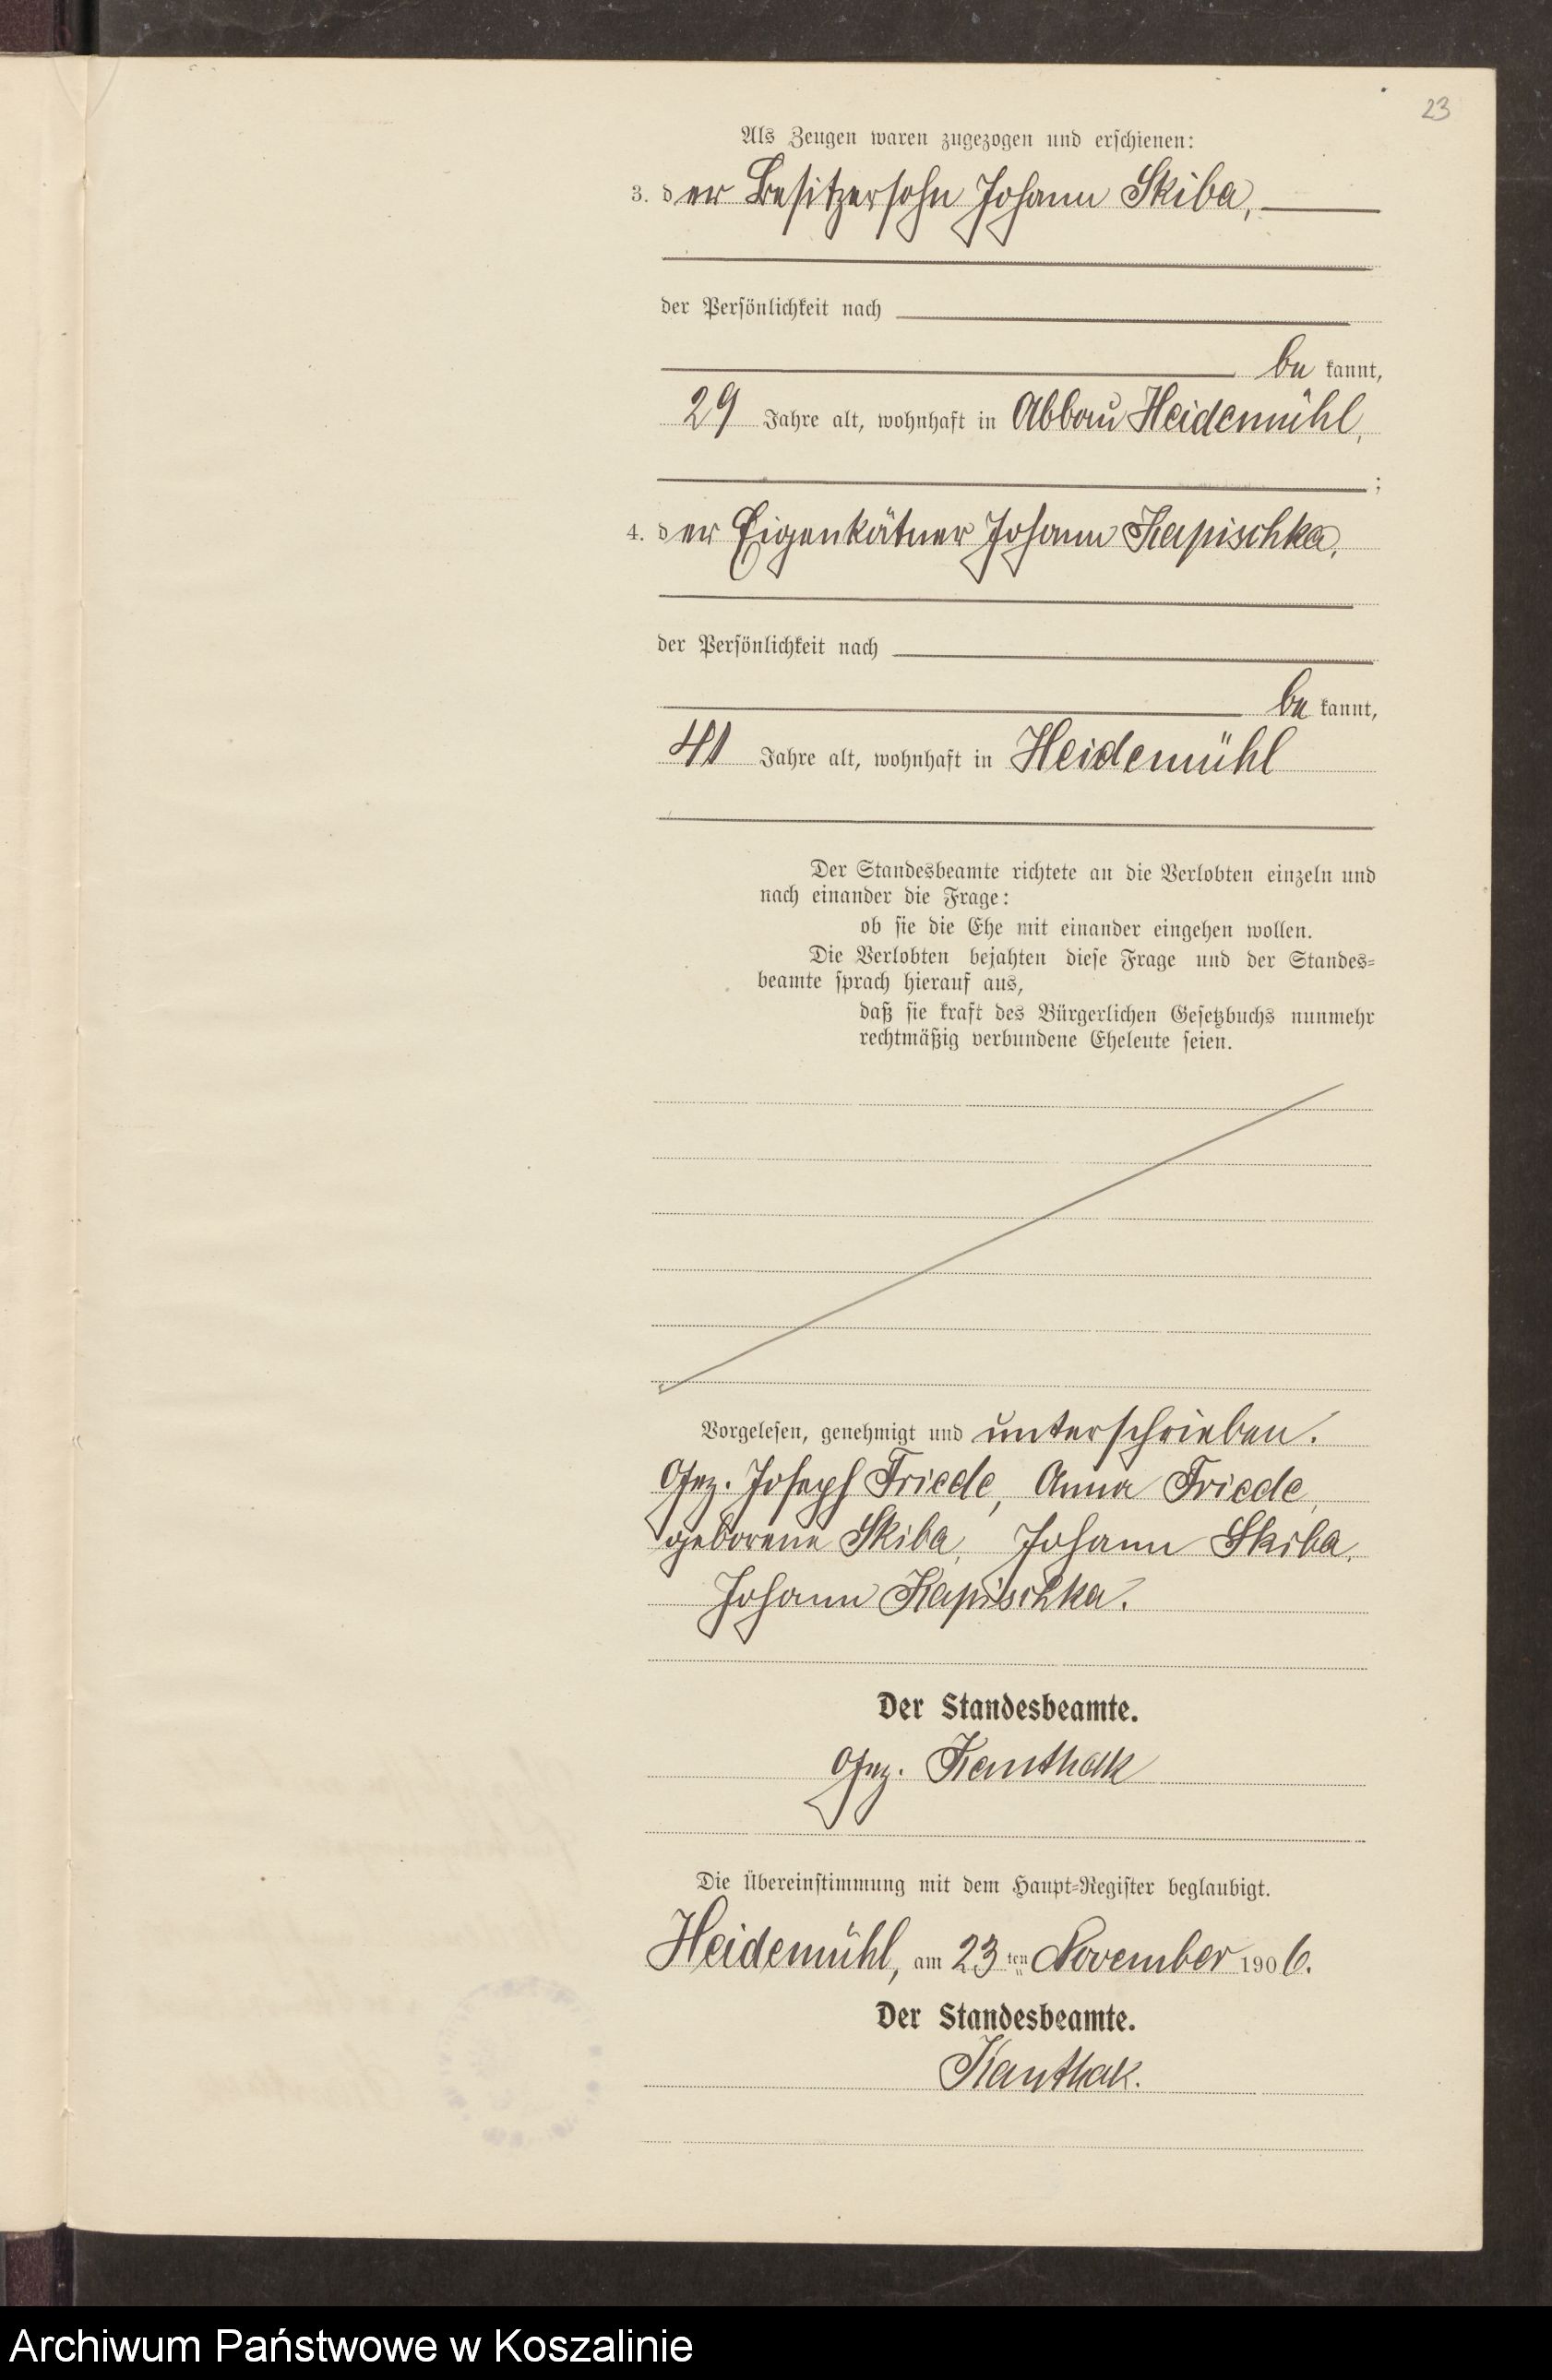 23
Als Zeugen waren zugezogen und erschienen:
3. der Besitzersohn Johann Skiba,
der Persönlichkeit nach
be kannt,
29 Jahre alt, wohnhaft in Abbau Heidemühl,
;
4. der Eigenkätner Johann Kapischka,
der Persönlichkeit nach
be kannt,
41 Jahre alt, wohnhaft in Heidemühl
Der Standesbeamte richtete an die Verlobten einzeln und
nach einander die Frage:
ob sie die Ehe mit einander eingehen wollen.
Die Verlobten bejahten diese Frage und der Standes=
beamte sprach hierauf aus,
daß sie kraft des Bürgerlichen Gesetzbuchs nunmehr
rechtmäßig verbundene Eheleute seien.
Vorgelesen, genehmigt und unterschrieben.
Gez. Joseph Friede, Anna Friede,
geborene Skiba, Johann Skiba,
Johann Kapischka.
Der Standesbeamte.
Gez. Kanthak
Die Übereinstimmung mit dem Haupt=Register beglaubigt.
Heidemühl, am 23ten November 1906.
Der Standesbeamte.
Kanthak.
Archiwum Państwowe w Koszalinie